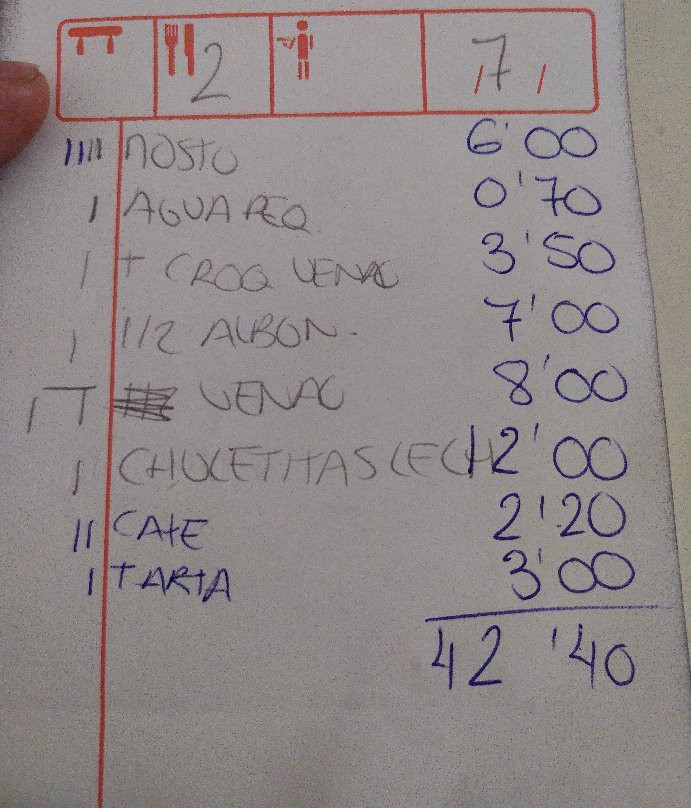 2 7
IIII MOSTO 6'00
I AGUA PEQ. 0'70
I T CROQ VENAO 3'50
I 1/2 ALBON. 7'00
I T VENAO 8'00
I CHULETITAS LECH 12'00
II CAFE 2'20
I TARTA 3'00
42'40